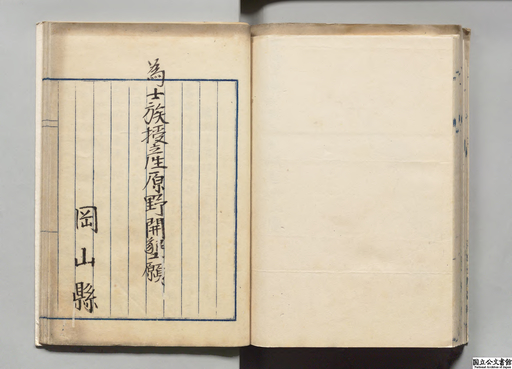 為士族授産原野開墾願
岡山縣
国立公文書館
National Archives of Japan